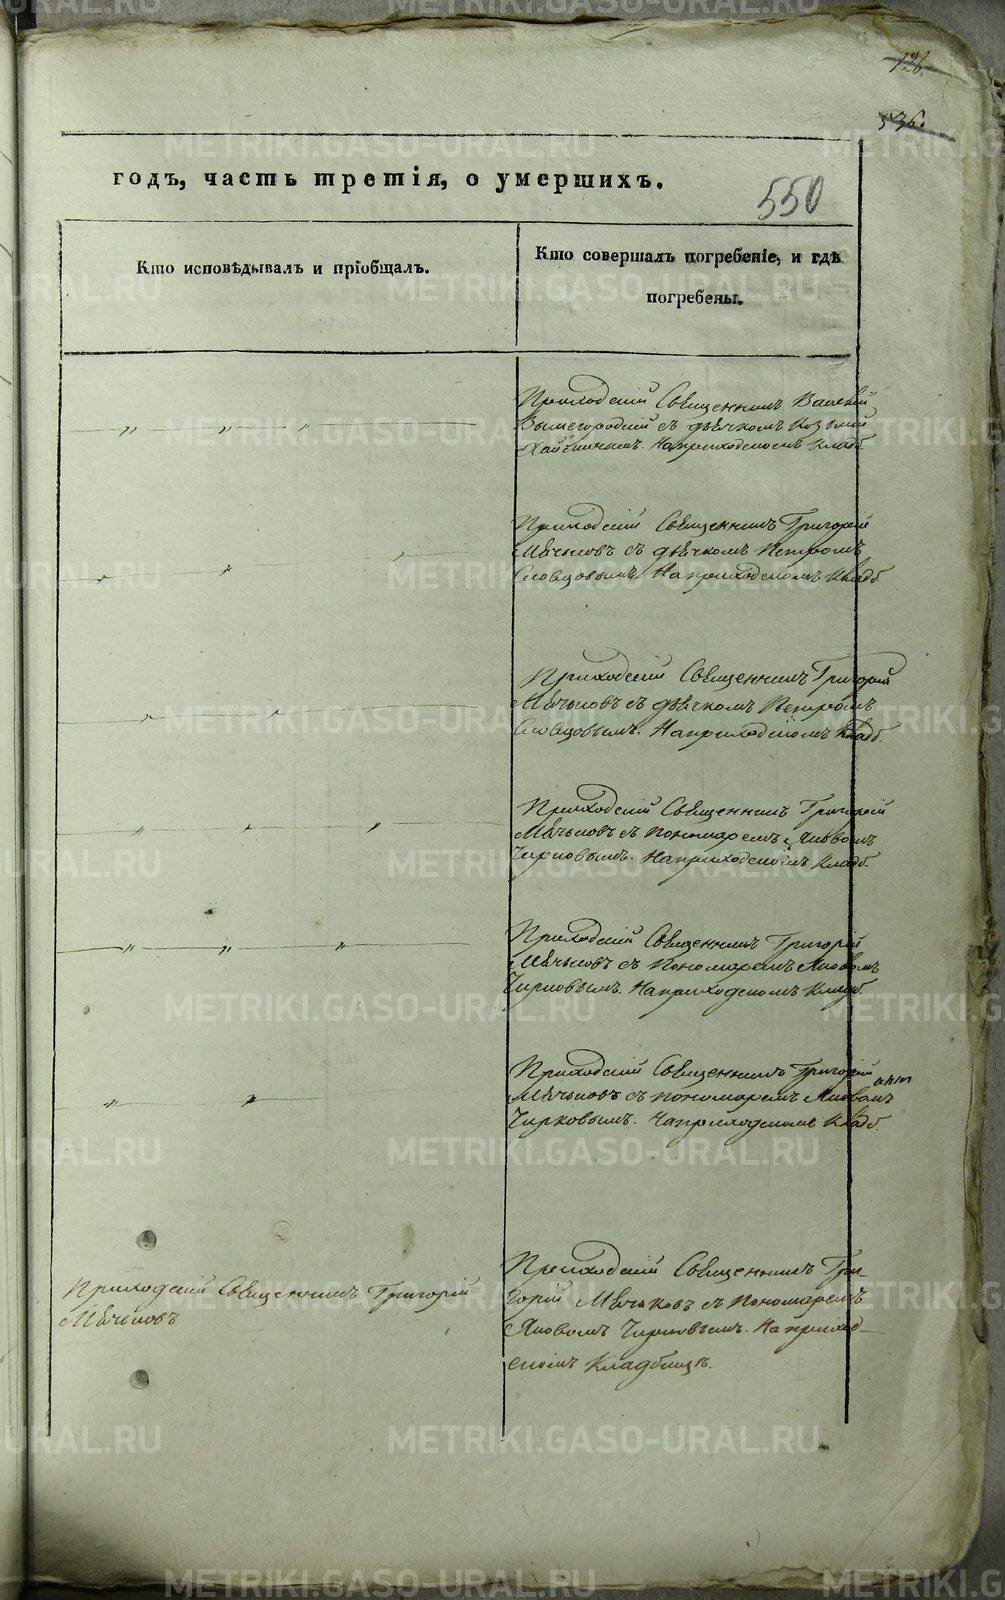 126.
536.
годъ, часть третія, о умершихъ.
550
Кто исповѣдывалъ и пріобщалъ.
Кто совершалъ погребеніе, и гдѣ
погребены.
Приходскій Священникъ Василій
Вышегородскій съ дьячкомъ Козьмой
На приходскомъ Кладб.
Приходскій Священникъ Григорій
Мячковъ съ дьячкомъ Петромъ
Словцовымъ. На приходскомъ Кладб.
Приходскій Священникъ Григорій
Мячковъ съ дьячкомъ Петромъ
Словцовымъ. На приходскомъ Кладб.
Приходскій Священникъ Григорій
Мячковъ съ пономаремъ Яковомъ
Чирковымъ. На приходскомъ Кладб.
Приходскій Священникъ Григорій
Мячковъ съ пономаремъ Яковомъ
Чирковымъ. На приходскомъ Кладб.
Приходскій Священникъ Григорій
Мячковъ съ пономаремъ Яковомъ
Чирковымъ. На приходскомъ Кладб.
Приходскій Священникъ Григорій
Мячковъ
Приходскій Священникъ Гри-
горій Мячковъ съ пономаремъ
Яковомъ Чирковымъ. На приход-
скомъ Кладбищѣ.
METRIKI.GASO-URAL.RU